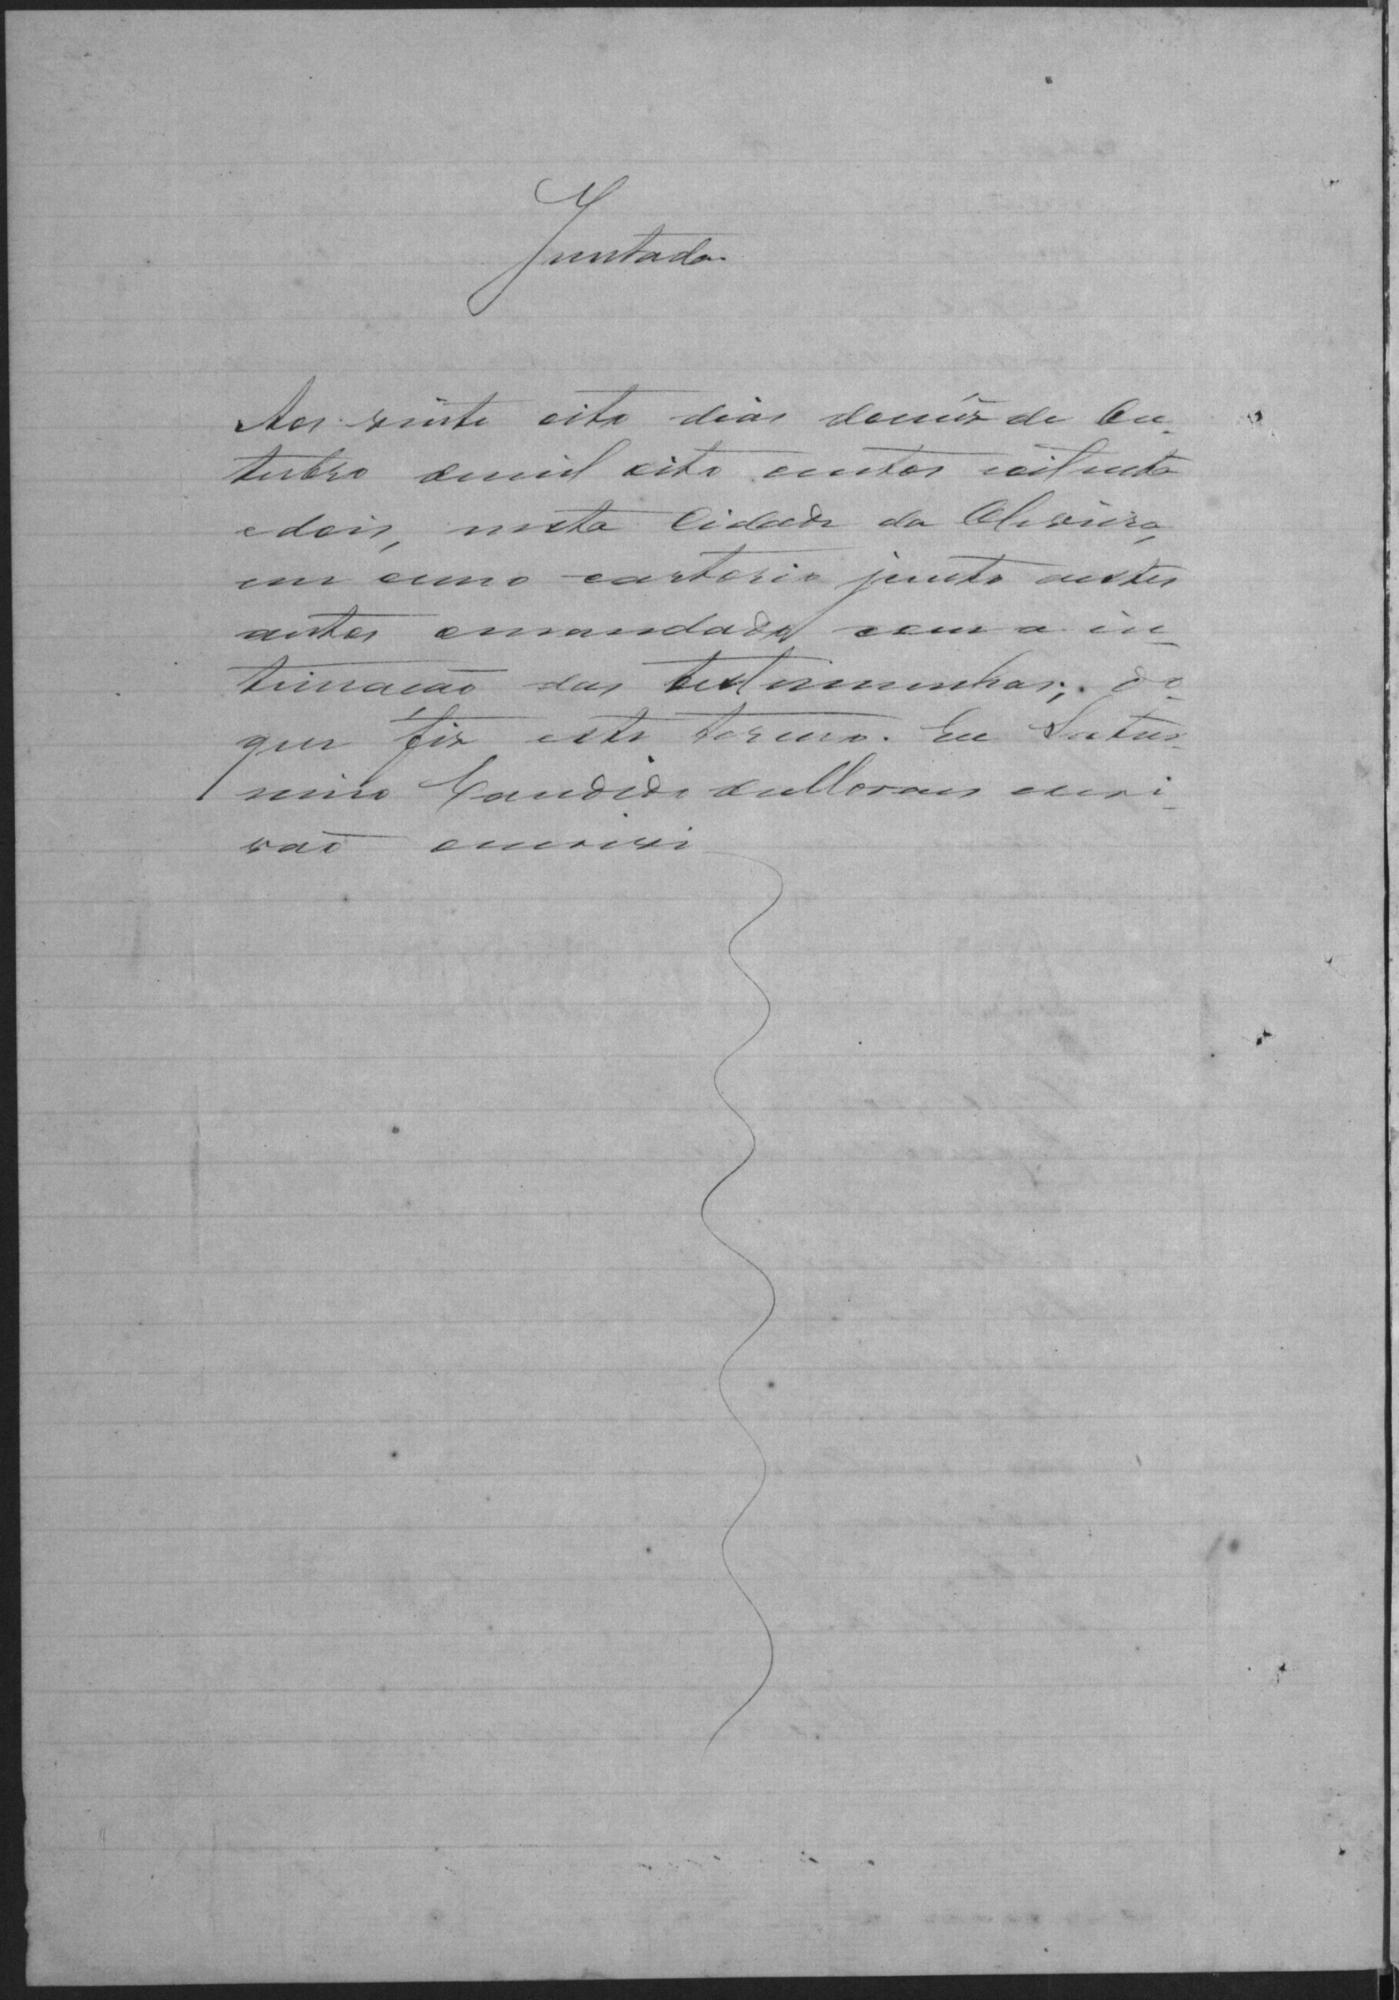 Juntada
Aos vinte oito dias domêz de Ou-
tubro demil oito centos oitenta
edois, nesta Cidade da Oliveira,
em meu cartorio junto aestes
autos omandado com a in-
timação das testemunhas; do
que fiz este termo. Eu Satur-
nino Candido de Moraes escri-
vão escrevi